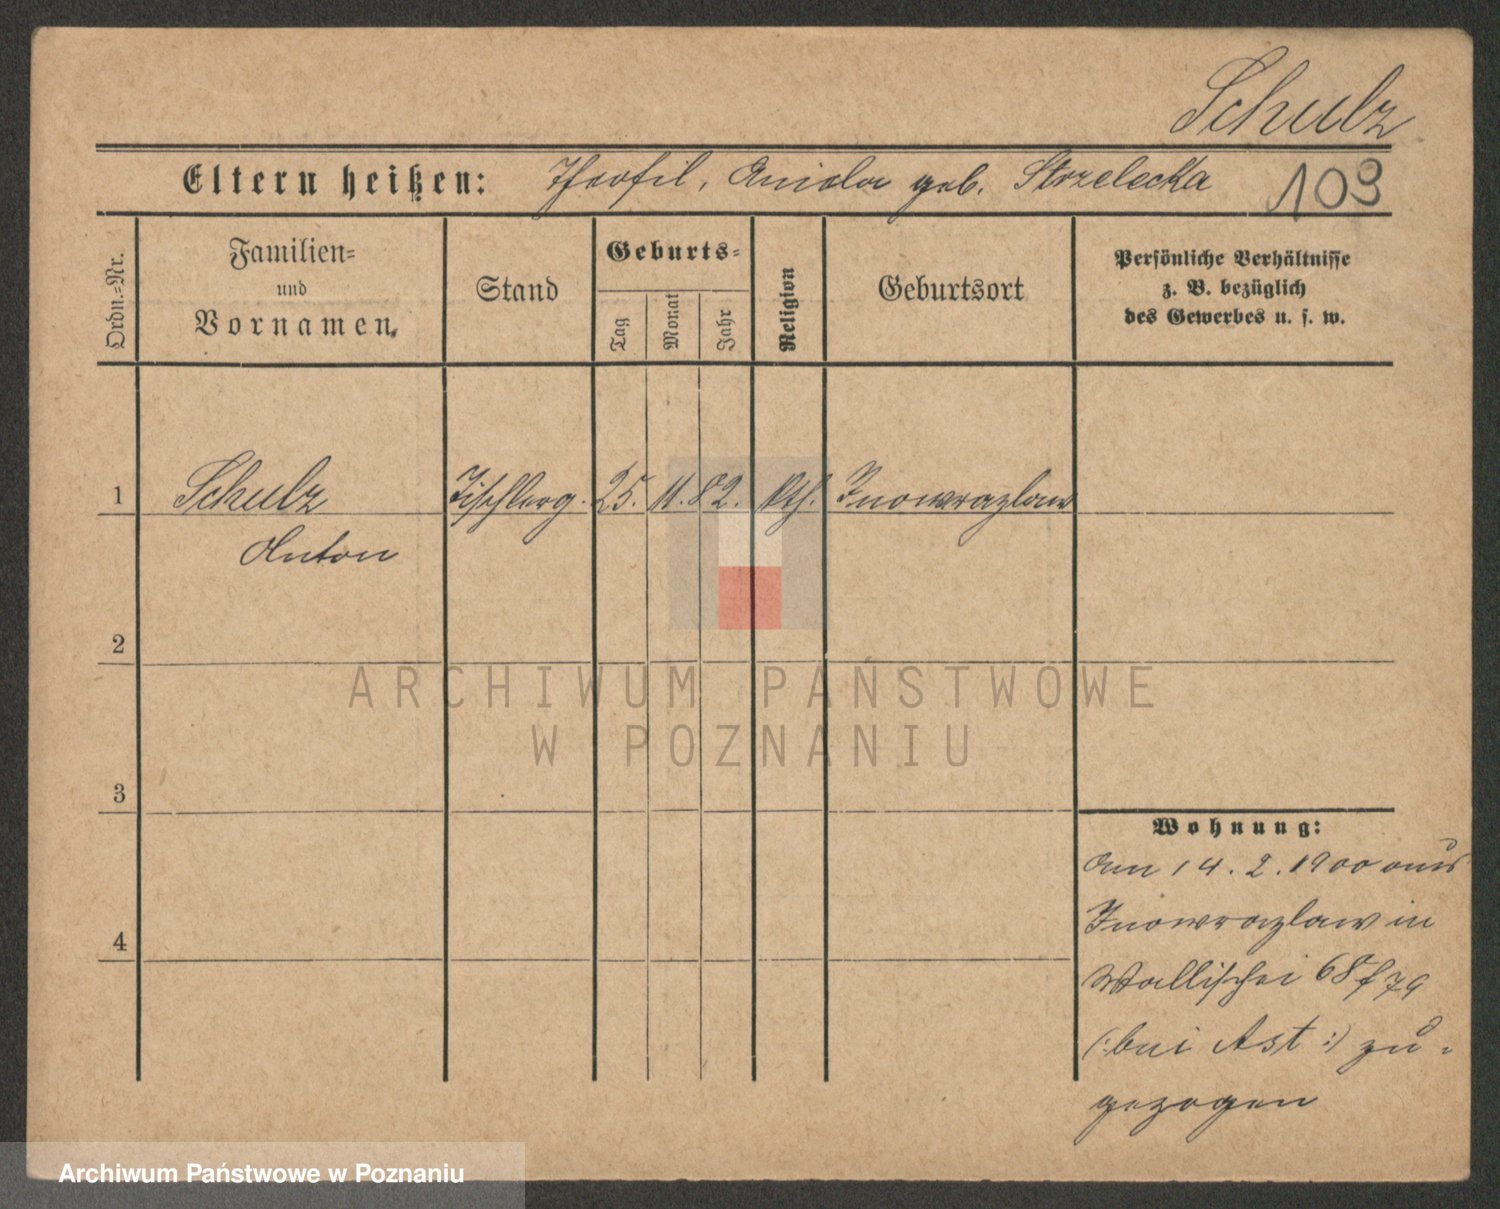 Schulz
Eltern heißen: Theofil, Aniela geb. Strzelecka 103
Ordn.=Nr.
Familien=
und
Vornamen.
Stand
Geburts=
Tag
Monat
Jahr
Religion
Geburtsort
Persönliche Verhältnisse
z. B. bezüglich
des Gewerbes u. s. w.
1 Schulz Tischlerg. 25. 11. 82. kth. Inowrazlaw
Anton
2
ARCHIWUM PAŃSTWOWE
W POZNANIU
3
Wohnung:
Am 14. 2. 1900 aus
Inowrazlaw in
4
Wallischei 68/79
(:bei Ast:) zu=
gezogen
Archiwum Państwowe w Poznaniu